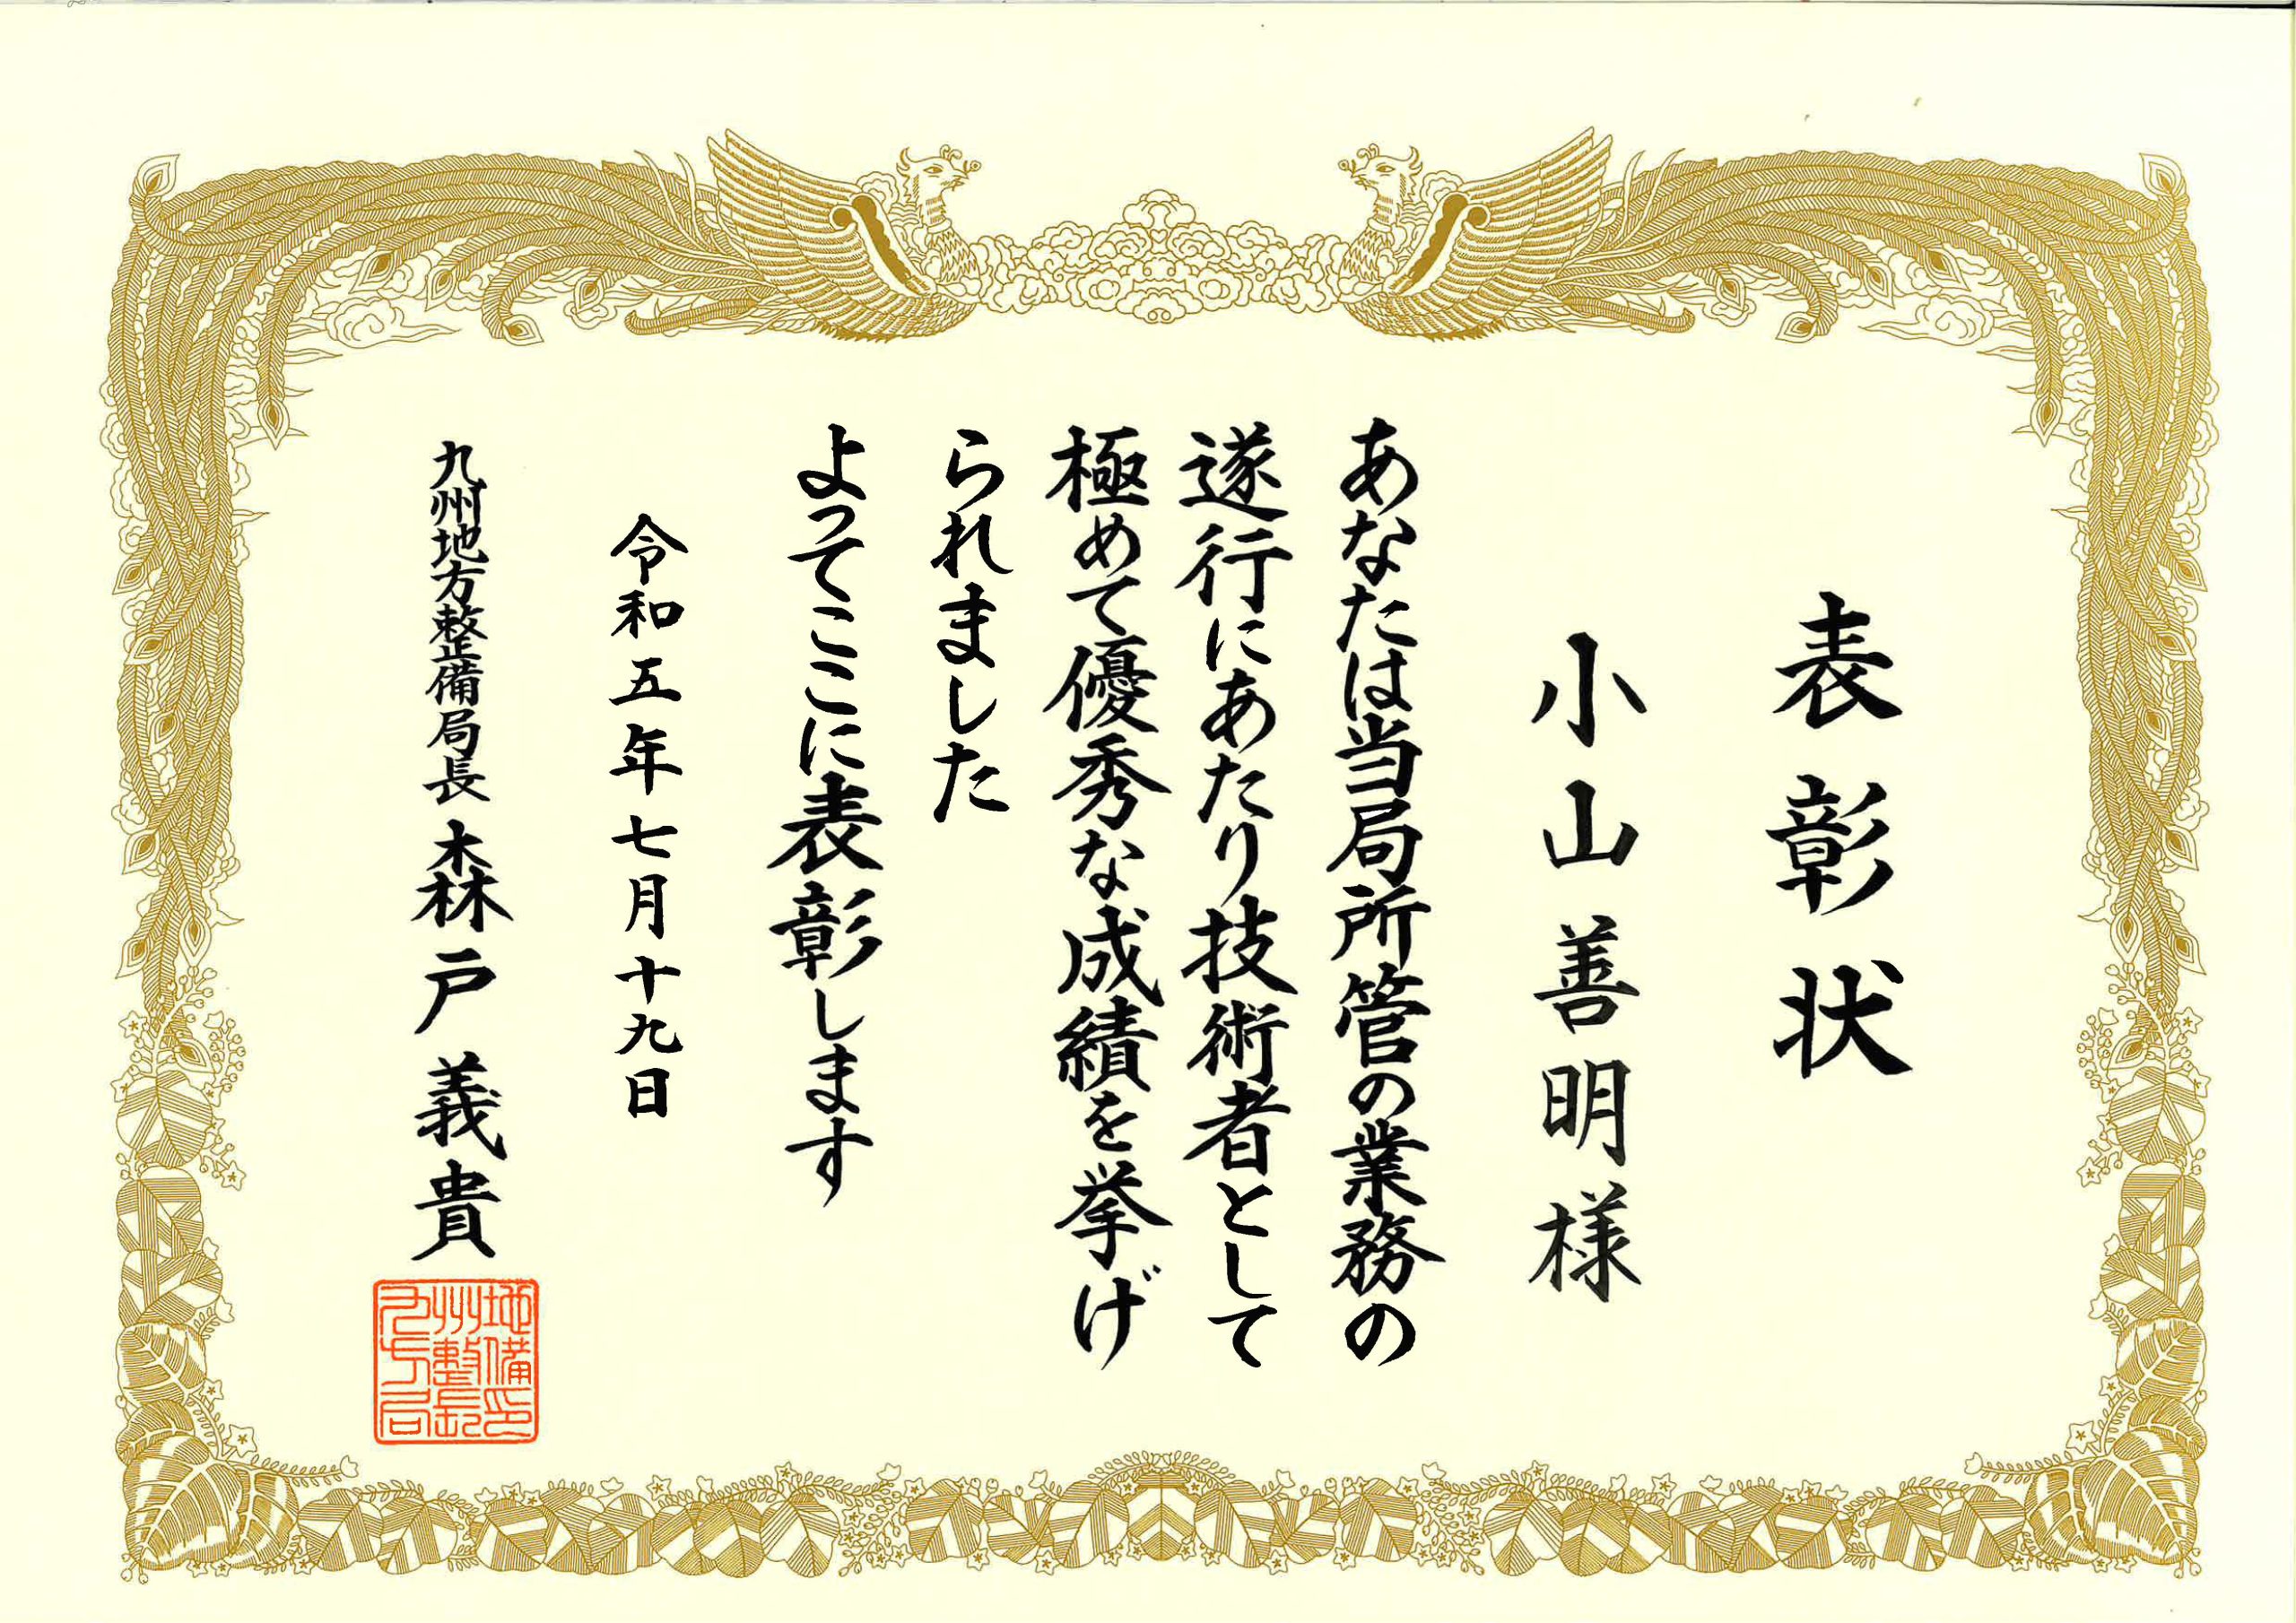 表彰状
小山善明様
あなたは当局所管の業務の
遂行にあたり技術者として
極めて優秀な成績を挙げ
られました
よってここに表彰します
令和五年七月十九日
九州地方整備局長 森戸義貴
九州地
方整備
局長印